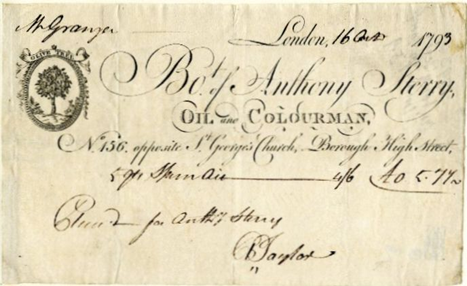 Mr Granger
London, 16 Oct 1793
OLIVE TREE
Bot. of Anthony Sterry,
OIL and COLOURMAN,
No. 156. opposite St. George's Church, Borough High Street,
5 4/6 £0 5.
for Anthy Sterry
Taylor